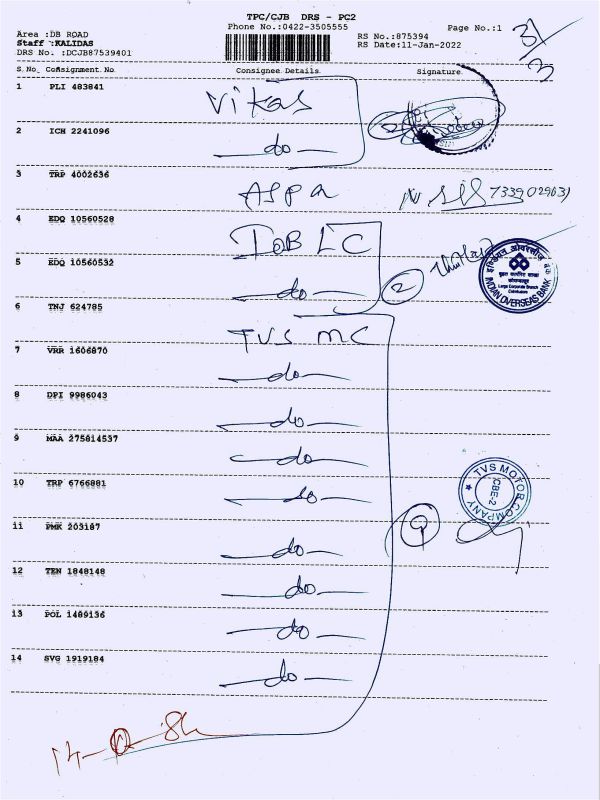 TPC/CJB DRS - PC2
Phone No.:0422-3505555
Page No.:1
3/3
Area :DB ROAD
Staff :KALIDAS
DRS No. :DCJB87539401
RS No.:875394
RS Date:11-Jan-2022
S.No. Consignment No Consignee Details Signature
1 PLI 483841 Vikas
2 ICH 2241096 do
3 TRP 4002636 Aspa 7339029631
4 EDQ 10560528 IOB LC
5 EDQ 10560532 do 2
इण्डियन ओवरसीज बैंक
Large Corporate Branch
Coimbatore
INDIAN OVERSEAS BANK
6 TNJ 624785 TVS MC
7 VRR 1606870 do
8 DPI 9986043 do
9 MAA 275814537 do
10 TRP 6766881 do
TVS MOTOR COMPANY
CBE-2
11 PMK 203187 do 9
12 TEN 1848148 do
13 POL 1489136 do
14 SVG 1919184 do